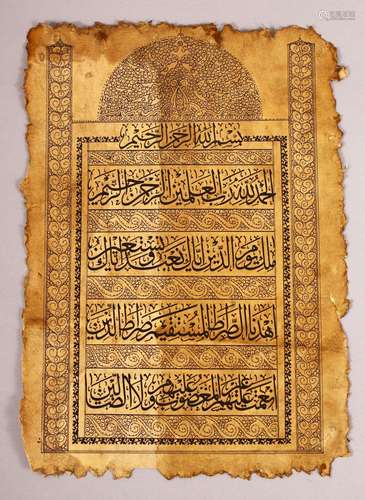 بسم الله الرحمن الرحيم
الحمد لله رب العلمين الرحمن الرحيم
ملك يوم الدين اياك نعبد واياك نستعين
اهدنا الصراط المستقيم صراط الذين
انعمت عليهم غير المغضوب عليهم ولا الضالين